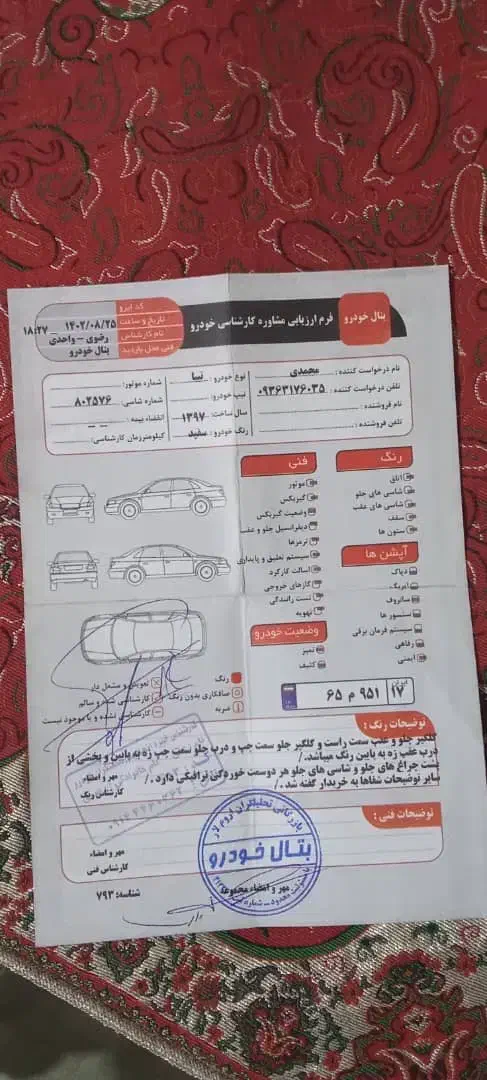 بتال خودرو
فرم ارزیابی مشاوره کارشناسی خودرو
کد ایزو
تاریخ و ساعت ۱۴۰۲/۰۸/۲۵ ۱۸:۲۷
نام کارشناس رضوی – واحدی
فنی محل بازدید بتال خودرو
نام درخواست کننده : محمدی
نوع خودرو : تیبا
شماره موتور:
تلفن درخواست کننده : ۰۹۳۶۳۱۷۶۰۳۵
تیپ خودرو:
شماره شاسی: ۸۰۲۵۷۶
نام فروشنده :
سال ساخت: ۱۳۹۷
انقضاء بیمه : – –
تلفن فروشنده :
رنگ خودرو: سفید
کیلومترزمان کارشناسی:
رنگ
اتاق
شاسی های جلو
شاسی های عقب
سقف
ستون ها
فنی
موتور
گیربکس
وضعیت گیربکس
دیفرانسیل جلو و عقب
ترمزها
سیستم تعلیق و پایداری
اصالت کارکرد
گازهای خروجی
تست رانندگی
تهویه
آپشن ها
دیاک
ایربگ
سانروف
سنسور ها
سیستم فرمان برقی
رفاهی
ایمنی
وضعیت خودرو
تمیز
کثیف
رنگ
تعویض و مشعل دار
صافکاری بدون رنگ
کارشناسی شده و سالم
ضربه
کارشناسی نشده و یا موجود نیست
ایران
۱۷ ۹۵۱ م ۶۵
توضیحات رنگ :
گلگیر جلو و عقب سمت راست و گلگیر جلو سمت چپ و درب جلو سمت چپ زه به پایین و بخشی از
درب عقب زه به پایین رنگ میباشد./
پشت چراغ های جلو و شاسی های جلو هر دوسمت خوردگی ترافیکی دارد./
سایر توضیحات شفاها به خریدار گفته شد./
مهر و امضاء
کارشناس رنگ
توضیحات فنی :
مهر و امضاء
کارشناس فنی
بتال خودرو
مهر و امضاء مجموعه
شناسه: ۷۹۳